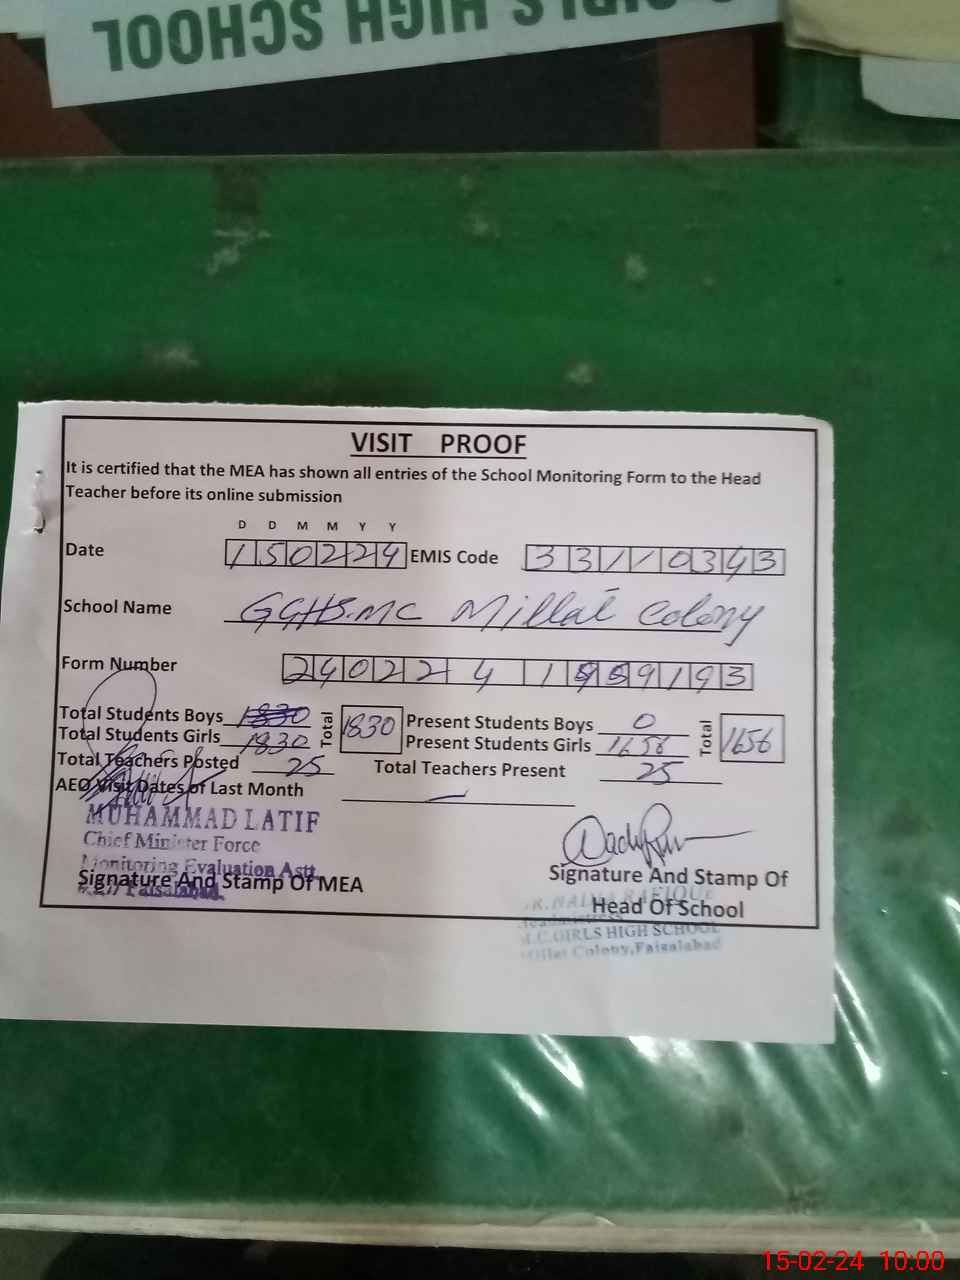 GIRL'S HIGH SCHOOL
VISIT PROOF
It is certified that the MEA has shown all entries of the School Monitoring Form to the Head
Teacher before its online submission
D D M M Y Y
Date 150224 EMIS Code 33110343
School Name GGHS.MC Millat Colony
Form Number
Total Students Boys Total 1830 Present Students Boys 0 Total 1656
Total Students Girls 1830 Present Students Girls 1656
Total Teachers Posted 25 Total Teachers Present 25
AEO Visit Dates of Last Month —
MUHAMMAD LATIF
Chief Minister Force
Monitoring Evaluation Astt
Faisalabad
Signature And Stamp Of MEA
Signature And Stamp Of
Head Of School
M.C.GIRLS HIGH SCHOOL
Millat Colony, Faisalabad
15-02-24 10:00